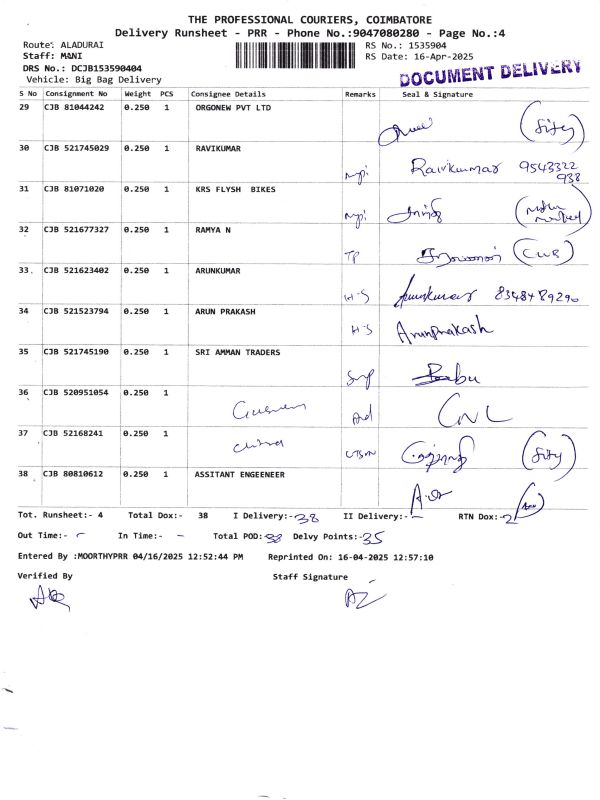 THE PROFESSIONAL COURIERS, COIMBATORE
Delivery Runsheet - PRR - Phone No.:9047080280 - Page No.:4
Route: ALADURAI RS No.: 1535904
Staff: MANI RS Date: 16-Apr-2025
DRS No.: DCJB153590404
DOCUMENT DELIVERY
Vehicle: Big Bag Delivery
S No Consignment No Weight PCS Consignee Details Remarks Seal & Signature
29 CJB 81044242 0.250 1 ORGONEW PVT LTD
30 CJB 521745029 0.250 1 RAVIKUMAR Ravikumar 9543322
938
31 CJB 81071020 0.250 1 KRS FLYSH BIKES
32 CJB 521677327 0.250 1 RAMYA N TP
33. CJB 521623402 0.250 1 ARUNKUMAR H-S Arunkumar 8348489290
34 CJB 521523794 0.250 1 ARUN PRAKASH H-S Arunprakash
35 CJB 521745190 0.250 1 SRI AMMAN TRADERS Babu
36 CJB 520951054 0.250 1
37 CJB 52168241 0.250 1
38 CJB 80810612 0.250 1 ASSITANT ENGEENEER
Tot. Runsheet:- 4 Total Dox:- 38 I Delivery:-38 II Delivery:- — RTN Dox:-
Out Time:- In Time:- — Total POD:-38 Delvy Points:-35
Entered By :MOORTHYPRR 04/16/2025 12:52:44 PM Reprinted On: 16-04-2025 12:57:10
Verified By Staff Signature